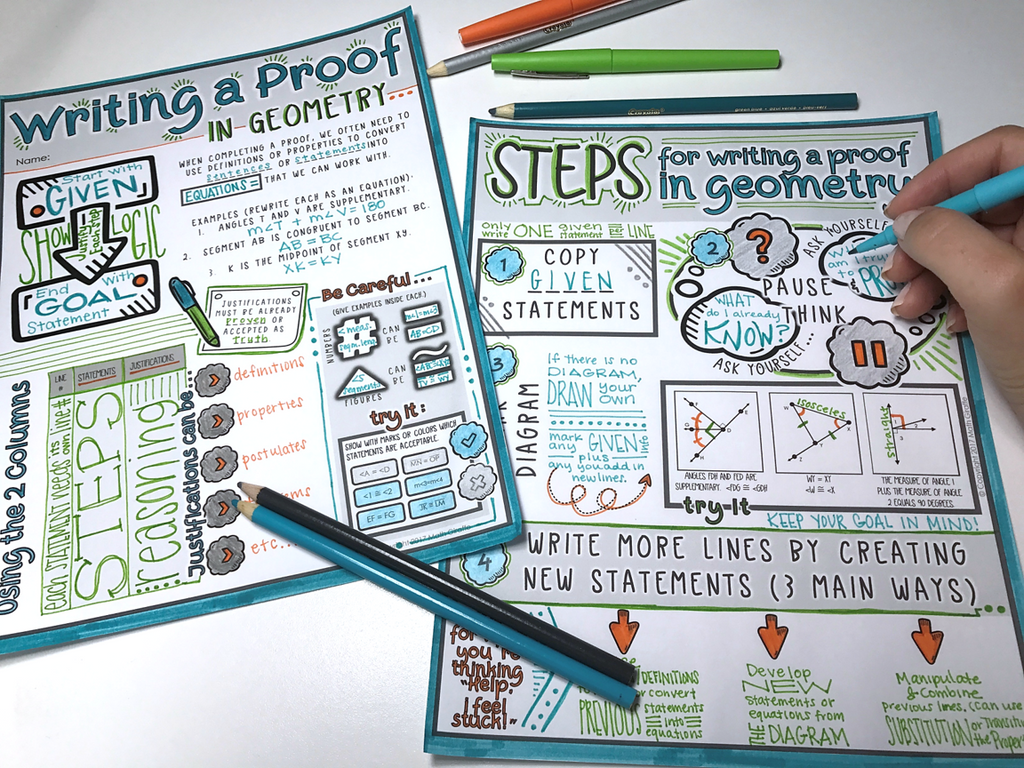 Writing a Proof
IN GEOMETRY
Name:
WHEN COMPLETING A PROOF, WE OFTEN NEED TO
USE DEFINITIONS OR PROPERTIES TO CONVERT
sentences OR statements INTO
EQUATIONS = THAT WE CAN WORK WITH.
Start with
GIVEN
SHOW LOGIC
End With
GOAL
Statement
EXAMPLES (REWRITE EACH AS AN EQUATION):
1. ANGLES T AND V ARE SUPPLEMENTARY.
m∠T + m∠V = 180
2. SEGMENT AB IS CONGRUENT TO SEGMENT BC.
AB = BC
3. K IS THE MIDPOINT OF SEGMENT XY.
XK = KY
JUSTIFICATIONS
MUST BE ALREADY
Proven OR
ACCEPTED AS
Truth
Using the 2 Columns
LINE #
STATEMENTS
JUSTIFICATIONS
each STATEMENT needs its own line #
STEPS
reasoning
Justifications can be...
definitions
properties
postulates
etc...
Be Careful...
(GIVE EXAMPLES INSIDE EACH)
NUMBERS
#
CAN BE
=
AB=CD
FIGURES
CAN BE
≅
try It:
SHOW WITH MARKS OR COLORS WHICH
STATEMENTS ARE ACCEPTABLE.
<A = <D
MN = OP
<1 ≅ <2
m<3=m<4
EF = FG
JK ≅ LM
STEPS for writing a proof
in geometry
only write ONE given statement per LINE
1
COPY
GIVEN
STATEMENTS
2
?
ASK YOURSELF
PAUSE
THINK
WHAT
do I already
KNOW?
ASK YOURSELF...
3
DIAGRAM
If there is no
DIAGRAM,
DRAW your
own
mark
any GIVEN info
plus
any you add in
new lines.
isosceles
straight
ANGLES FDH AND FED ARE
SUPPLEMENTARY. <FDG ≅ <GDH
WY = XY
THE MEASURE OF ANGLE 1
PLUS THE MEASURE OF ANGLE
2 EQUALS 90 DEGREES.
try It
KEEP YOUR GOAL IN MIND!
4
WRITE MORE LINES BY CREATING
NEW STATEMENTS (3 MAIN WAYS)
you're
thinking
"Help,
I feel
stuck!"
DEFINITIONS
or convert
PREVIOUS statements
into
equations
Develop
NEW
statements or
equations from
THE DIAGRAM
Manipulate
& Combine
previous lines. (Can use
SUBSTITUTION or